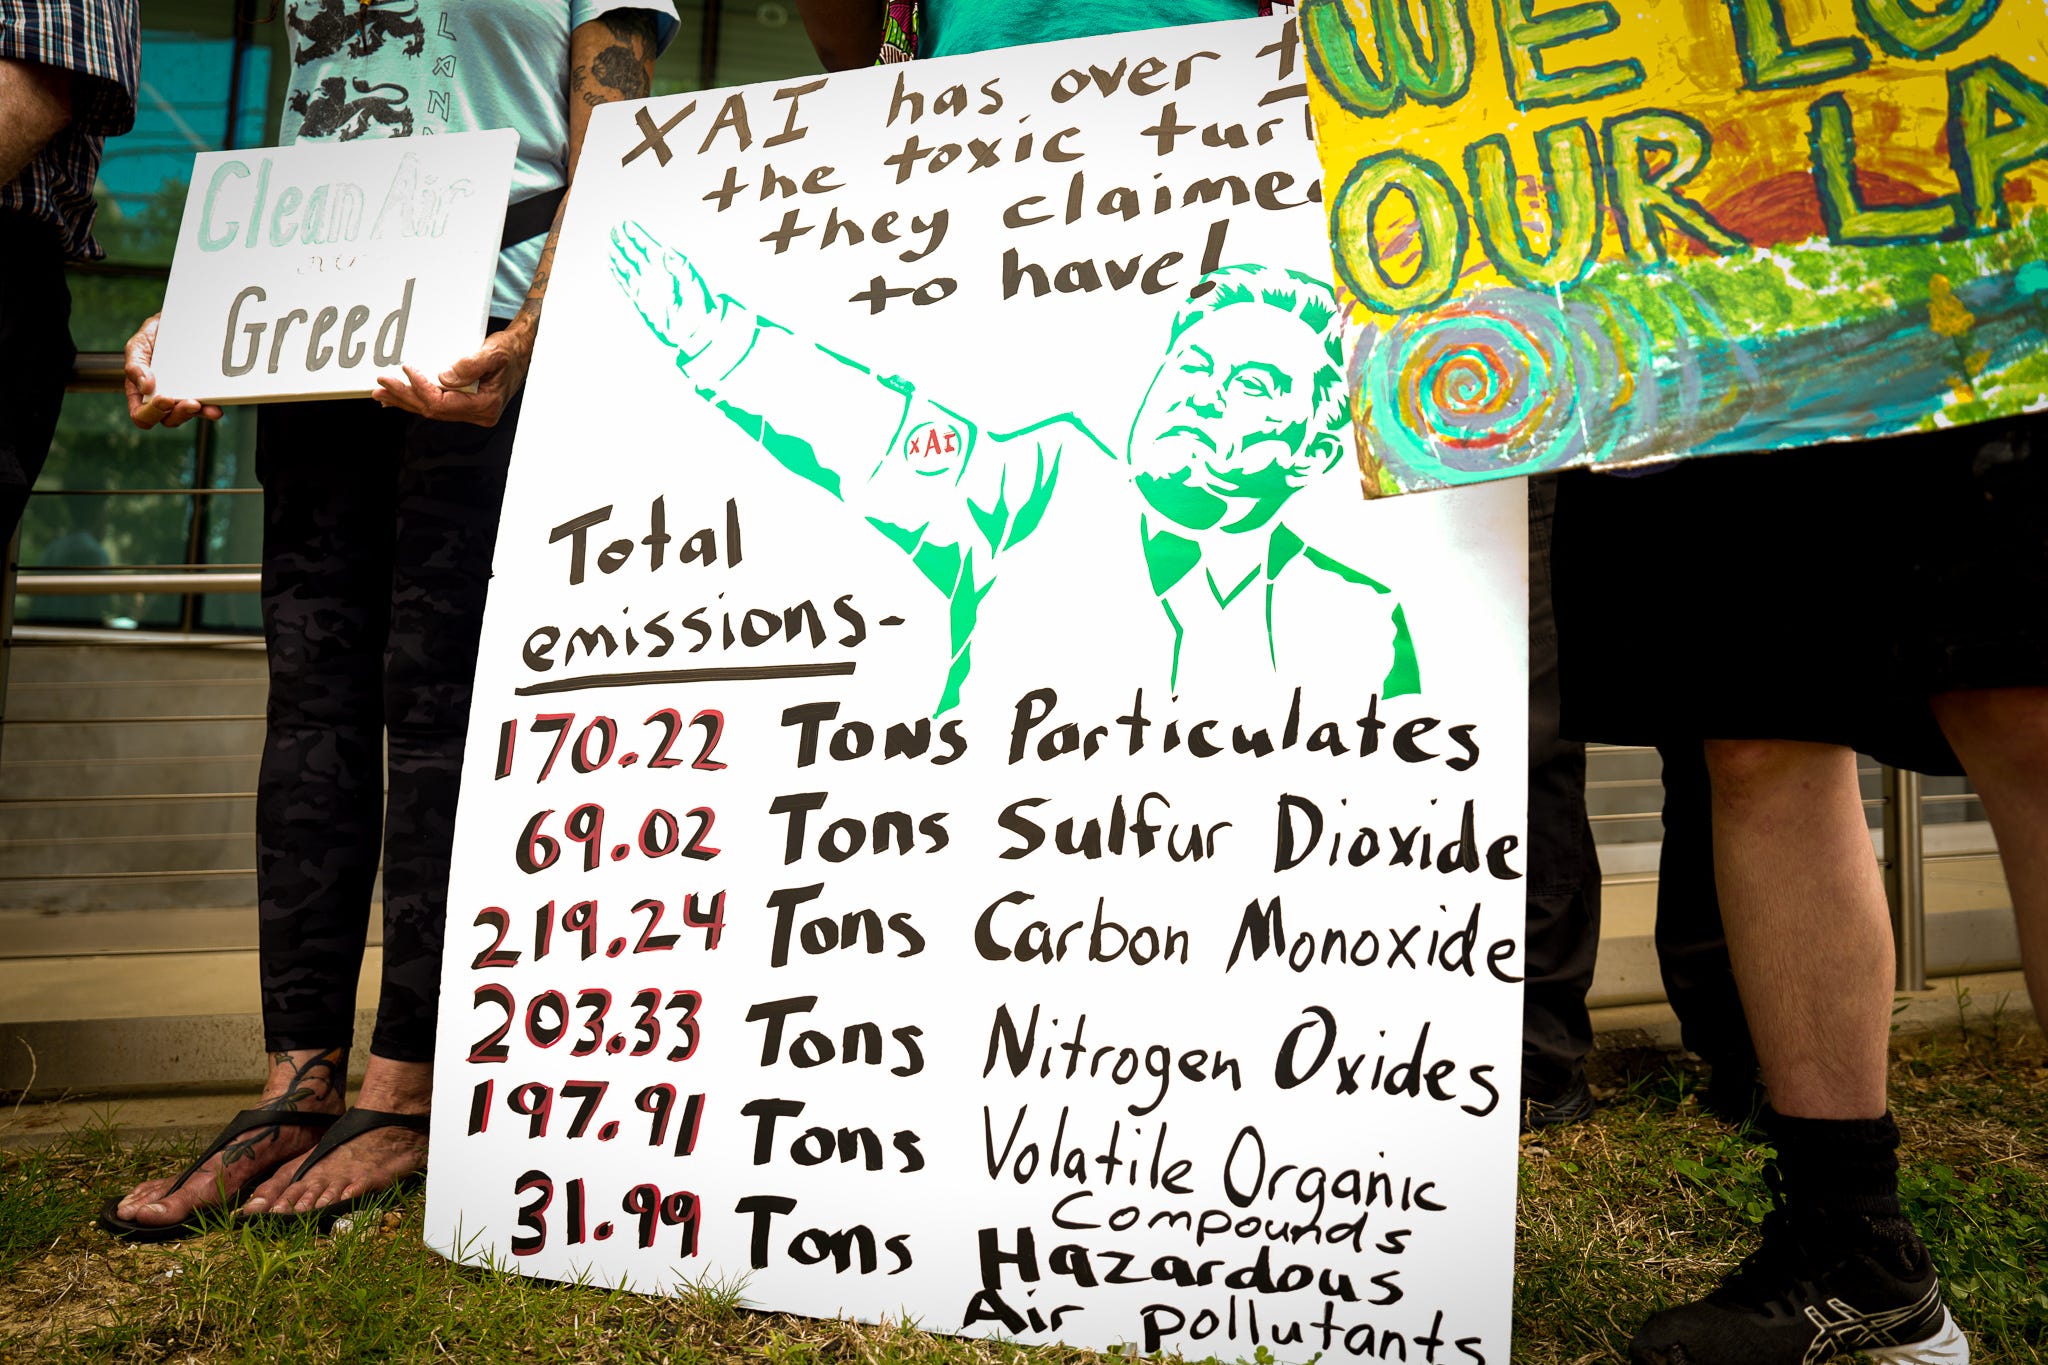 Clean Air
over
Greed
XAI has over
the toxic tur
they claimed
to have!
XAI
Total
emissions-
170.22 Tons Particulates
69.02 Tons Sulfur Dioxide
219.24 Tons Carbon Monoxide
203.33 Tons Nitrogen Oxides
197.91 Tons Volatile Organic
Compounds
31.99 Tons Hazardous
Air pollutants
WE LO
OUR LA